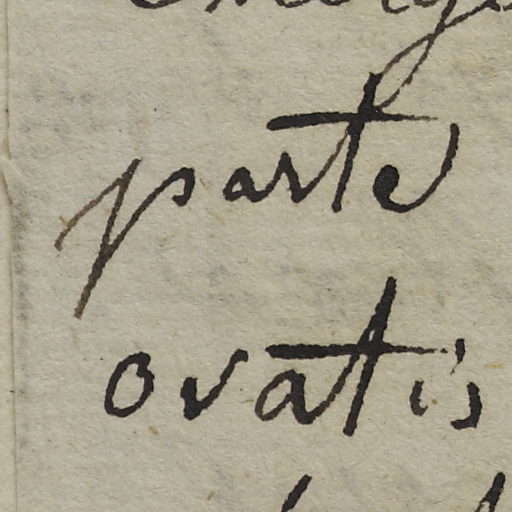 parte
ovatis